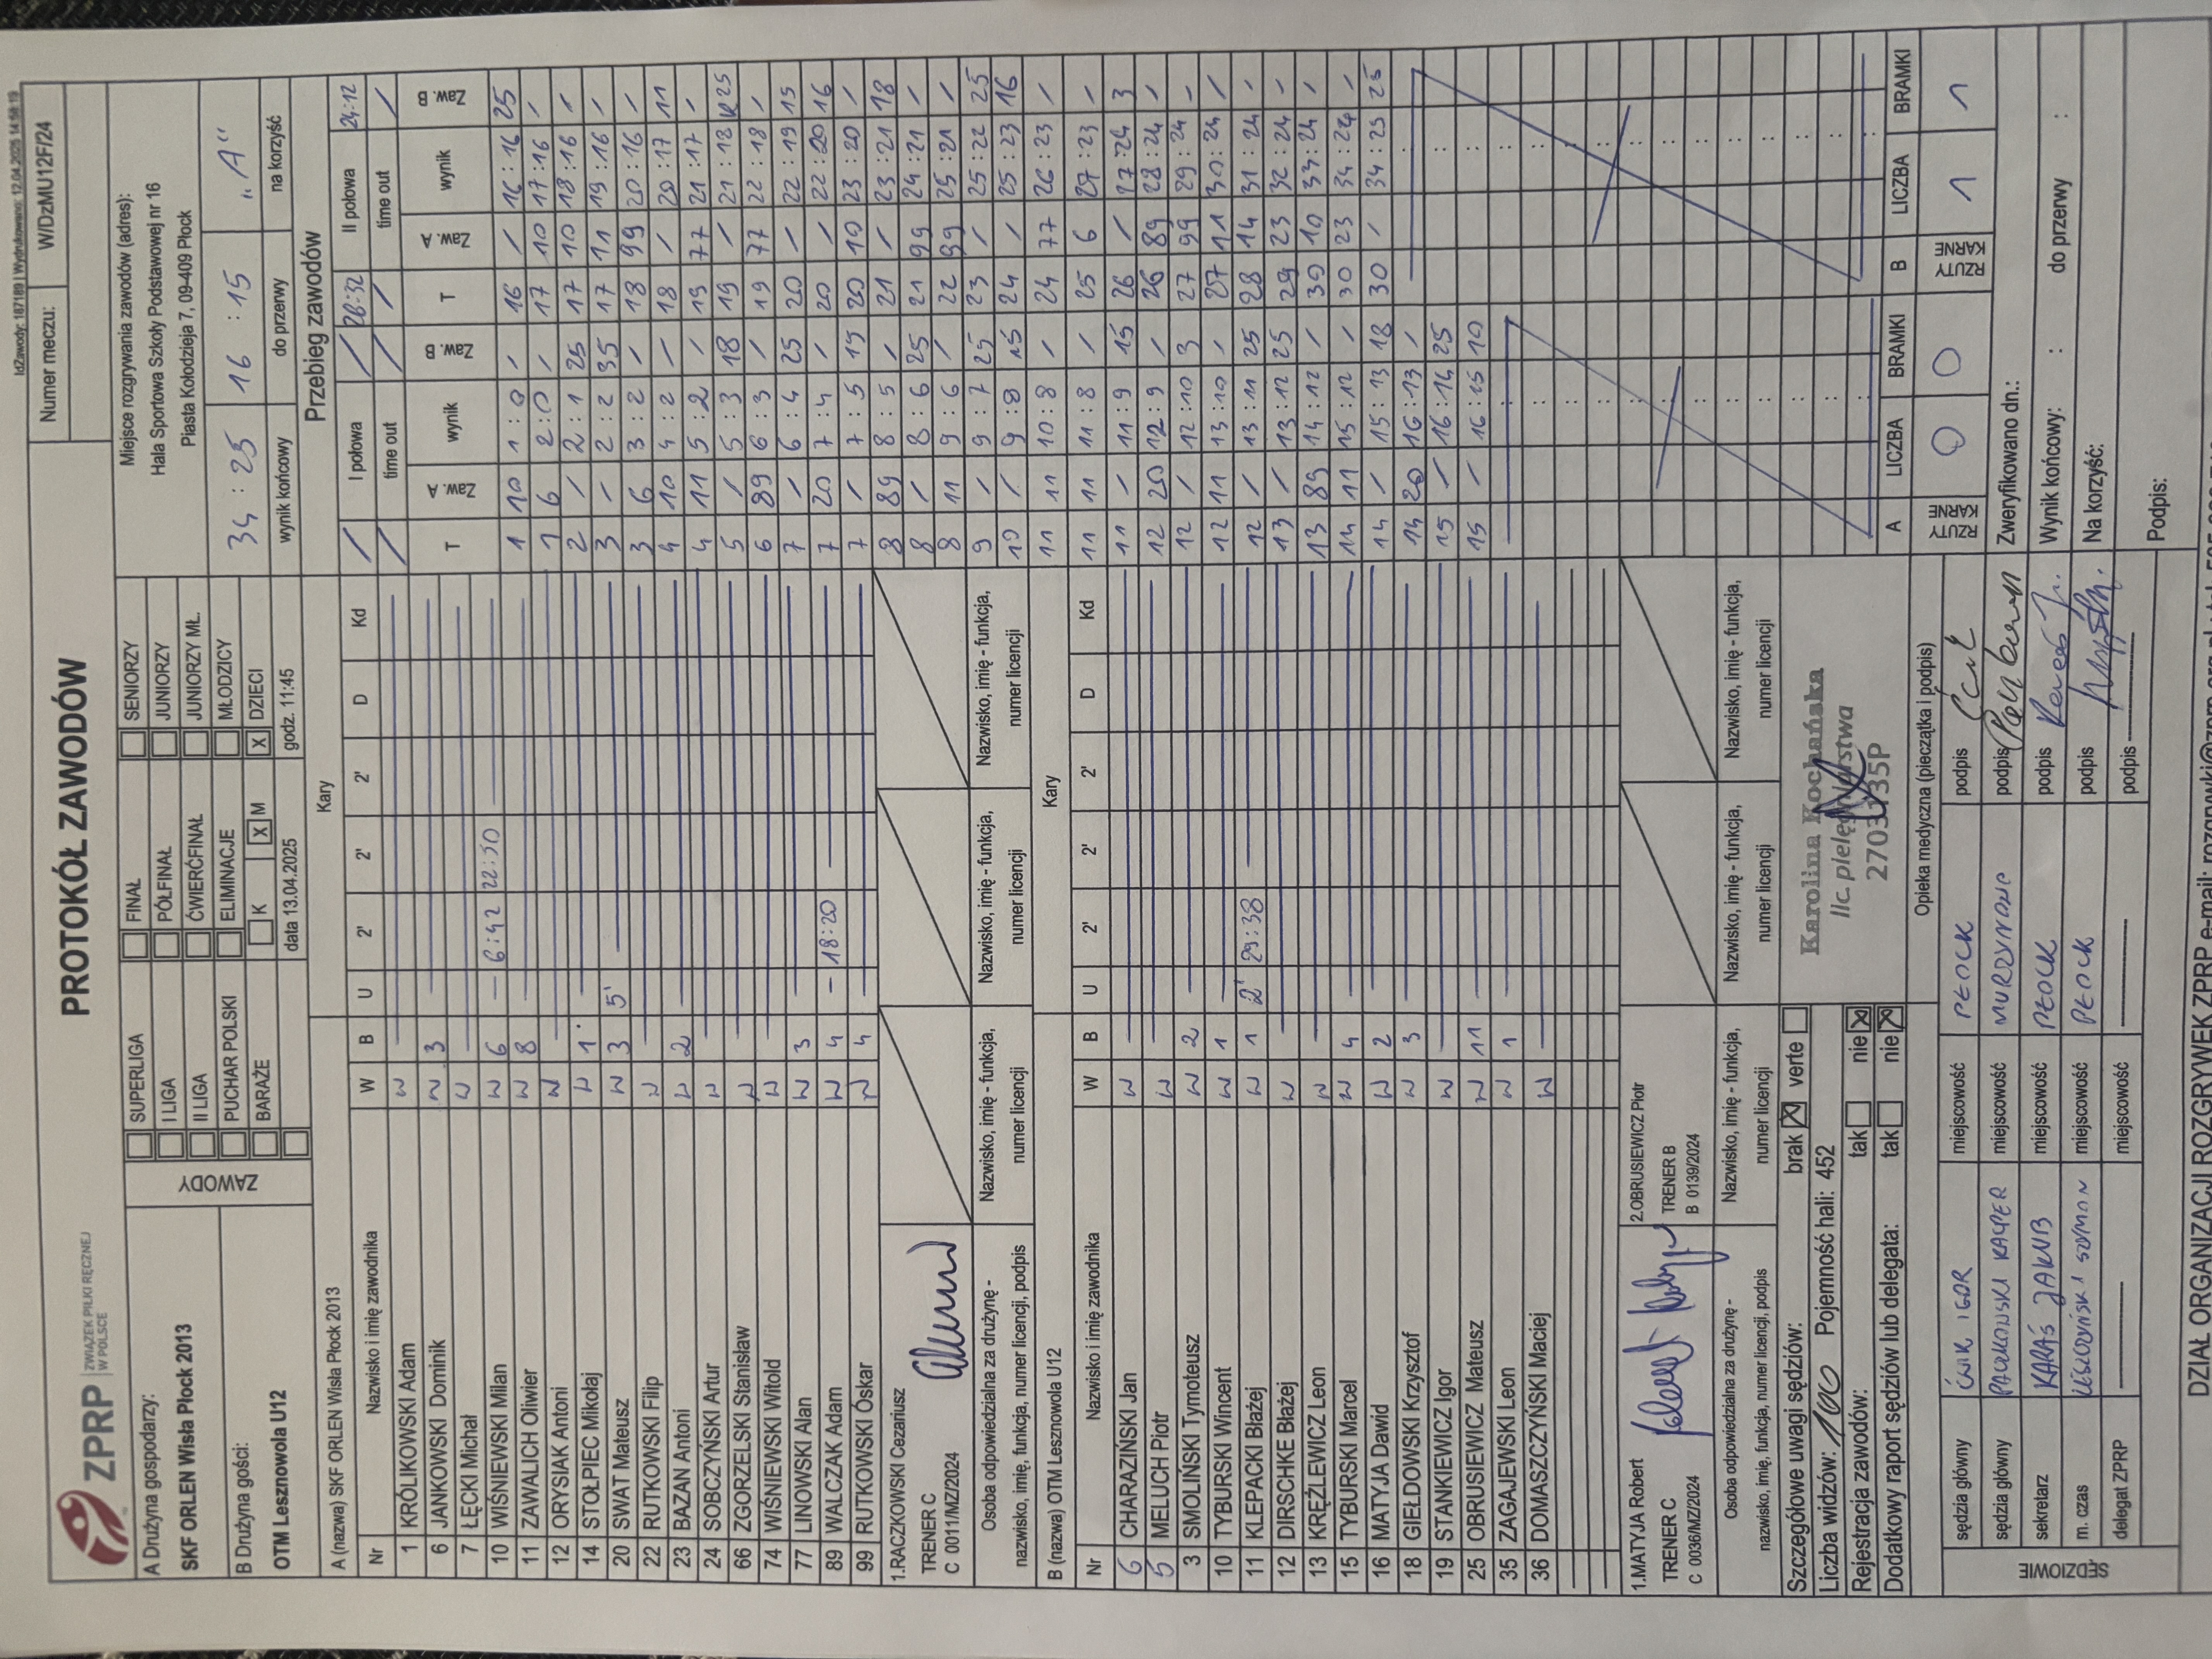 IdZawody: 187189 | Wydrukowano: 12.04.2025 14:58:19
ZPRP ZWIĄZEK PIŁKI RĘCZNEJ W POLSCE
PROTOKÓŁ ZAWODÓW
Numer meczu: W/DzMU12F/24
A Drużyna gospodarzy:
SKF ORLEN Wisła Płock 2013
B Drużyna gości:
OTM Lesznowola U12
ZAWODY
SUPERLIGA
I LIGA
II LIGA
PUCHAR POLSKI
BARAŻE
FINAŁ
PÓŁFINAŁ
ĆWIERĆFINAŁ
ELIMINACJE
K X M
data 13.04.2025
SENIORZY
JUNIORZY
JUNIORZY MŁ.
MŁODZICY
X DZIECI
godz. 11:45
Miejsce rozgrywania zawodów (adres):
Hala Sportowa Szkoły Podstawowej nr 16
Piasta Kołodzieja 7, 09-409 Płock
34 : 25 16 : 15 "A"
wynik końcowy do przerwy na korzyść
A (nazwa) SKF ORLEN Wisła Płock 2013 Kary
Nr Nazwisko i imię zawodnika W B U 2' 2' 2' D Kd
1 KRÓLIKOWSKI Adam W
6 JANKOWSKI Dominik W 3
7 ŁĘCKI Michał W
10 WIŚNIEWSKI Milan W 6 — 6:42 22:50
11 ZAWALICH Oliwier W 8
12 ORYSIAK Antoni W
14 STOŁPIEC Mikołaj W 1
20 SWAT Mateusz W 3 5'
22 RUTKOWSKI Filip W
23 BAZAN Antoni W 2
24 SOBCZYŃSKI Artur W
66 ZGORZELSKI Stanisław W
74 WIŚNIEWSKI Witold W
77 LINOWSKI Alan W 3
89 WALCZAK Adam W 4 — 18:20
99 RUTKOWSKI Oskar W 4
1.RACZKOWSKI Cezariusz
TRENER C
C 0011/MZ/2024
Osoba odpowiedzialna za drużynę -
nazwisko, imię, funkcja, numer licencji, podpis
Nazwisko, imię - funkcja,
numer licencji
Nazwisko, imię - funkcja,
numer licencji
Nazwisko, imię - funkcja,
numer licencji
B (nazwa) OTM Lesznowola U12 Kary
Nr Nazwisko i imię zawodnika W B U 2' 2' 2' D Kd
6 CHARAZIŃSKI Jan W
5 MELUCH Piotr W
3 SMOLIŃSKI Tymoteusz W 2
10 TYBURSKI Wincent W 1
11 KLEPACKI Błażej W 1 2' 29:38
12 DIRSCHKE Błażej W
13 KRĘŻLEWICZ Leon W
15 TYBURSKI Marcel W 4
16 MATYJA Dawid W 2
18 GIEŁDOWSKI Krzysztof W 3
19 STANKIEWICZ Igor W
25 OBRUSIEWICZ Mateusz W 11
35 ZAGAJEWSKI Leon W 1
36 DOMASZCZYŃSKI Maciej W
1.MATYJA Robert
TRENER C
C 0036/MZ/2024
2.OBRUSIEWICZ Piotr
TRENER B
B 0139/2024
Osoba odpowiedzialna za drużynę -
nazwisko, imię, funkcja, numer licencji, podpis
Nazwisko, imię - funkcja,
numer licencji
Nazwisko, imię - funkcja,
numer licencji
Nazwisko, imię - funkcja,
numer licencji
Szczegółowe uwagi sędziów: brak X verte
Liczba widzów: 100 Pojemność hali: 452
Rejestracja zawodów: tak nie X
Dodatkowy raport sędziów lub delegata: tak nie X
Karolina Kochańska
lic. pielęgniarstwa
2703735P
Opieka medyczna (pieczątka i podpis)
SĘDZIOWIE
sędzia główny ĆWIK IGOR miejscowość PŁOCK podpis
sędzia główny KACPER miejscowość podpis
sekretarz KARAŚ JAKUB miejscowość PŁOCK podpis
m. czas SZYMON miejscowość PŁOCK podpis
delegat ZPRP — miejscowość — podpis
Przebieg zawodów
I połowa 28:32 II połowa 24:12
time out time out
T Zaw. A wynik Zaw. B T Zaw. A wynik Zaw. B
1 10 1 : 0 / 16 / 16 : 16 25
1 6 2 : 0 / 17 10 17 : 16 /
2 / 2 : 1 25 17 10 18 : 16 /
3 / 2 : 2 35 17 11 19 : 16 /
3 6 3 : 2 / 18 99 20 : 16 /
4 10 4 : 2 / 18 / 20 : 17 11
4 11 5 : 2 / 19 77 21 : 17 /
5 / 5 : 3 18 19 / 21 : 18 K 25
6 89 6 : 3 / 19 77 22 : 18 /
7 / 6 : 4 25 20 / 22 : 19 15
7 20 7 : 4 / 20 / 22 : 20 16
7 / 7 : 5 15 20 10 23 : 20 /
8 89 8 : 5 / 21 / 23 : 21 18
8 / 8 : 6 25 21 99 24 : 21 /
8 11 9 : 6 / 22 99 25 : 21 /
9 / 9 : 7 25 23 / 25 : 22 25
10 / 9 : 8 15 24 / 25 : 23 16
11 11 10 : 8 / 24 77 26 : 23 /
11 11 11 : 8 / 25 6 27 : 23 /
11 / 11 : 9 15 26 / 27 : 24 3
12 20 12 : 9 / 26 89 28 : 24 /
12 / 12 : 10 3 27 99 29 : 24 /
12 11 13 : 10 / 27 11 30 : 24 /
12 / 13 : 11 25 28 14 31 : 24 /
13 / 13 : 12 25 29 23 32 : 24 /
13 89 14 : 12 / 30 10 33 : 24 /
14 11 15 : 12 / 30 23 34 : 24 /
14 / 15 : 13 18 30 / 34 : 25 25
14 20 16 : 13 /
15 / 16 : 14 25
15 / 16 : 15 10
A LICZBA BRAMKI B LICZBA BRAMKI
RZUTY KARNE 0 0 RZUTY KARNE 1 1
Zweryfikowano dn.:
Wynik końcowy: : do przerwy :
Na korzyść:
Podpis: